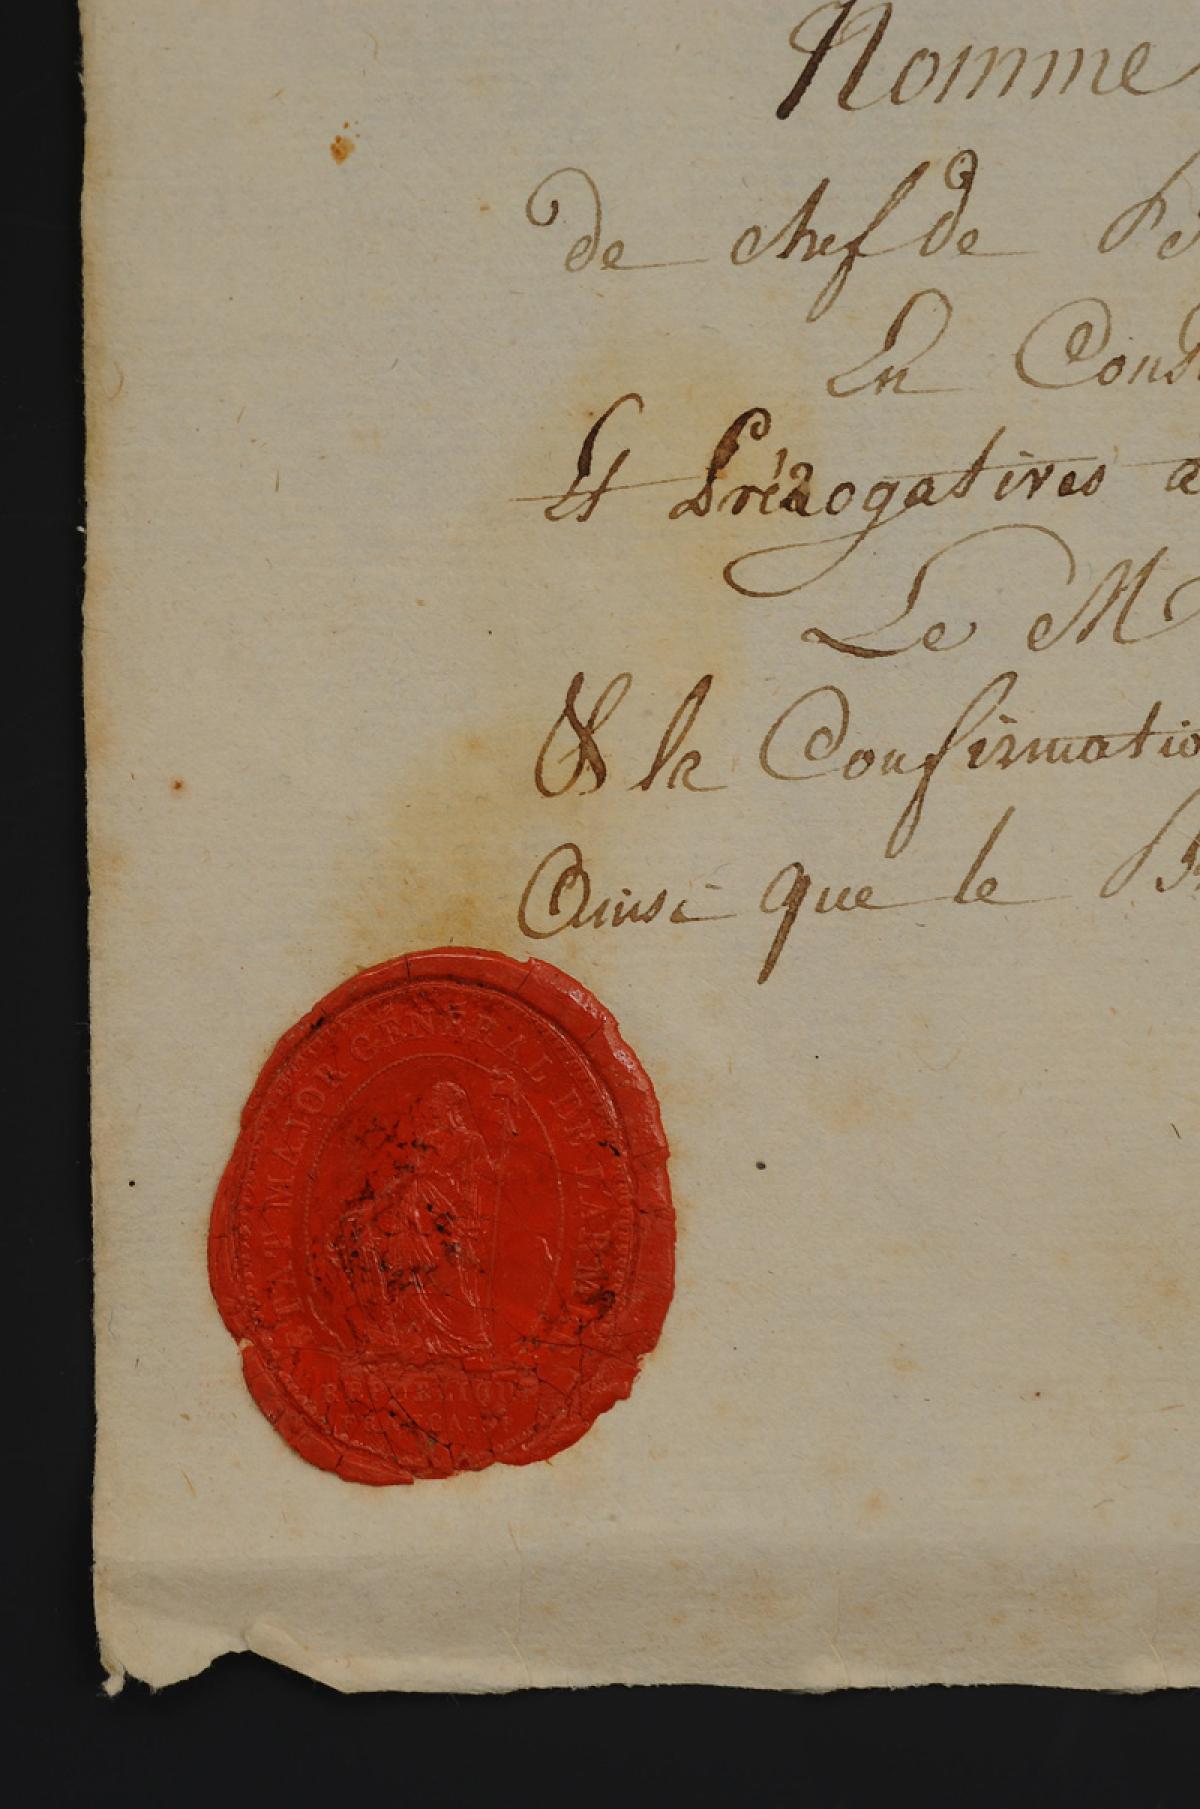 Nomme
de chef de
En
Et Prérogatives
Le
& la Confirmatio
Ainsi que le
ETAT MAJOR GENERAL DE L'ARMÉE
REPUBLIQUE
FRANCAISE